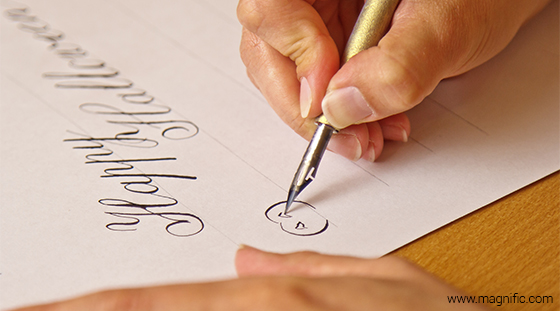 Happy Halloween
www.magnific.com